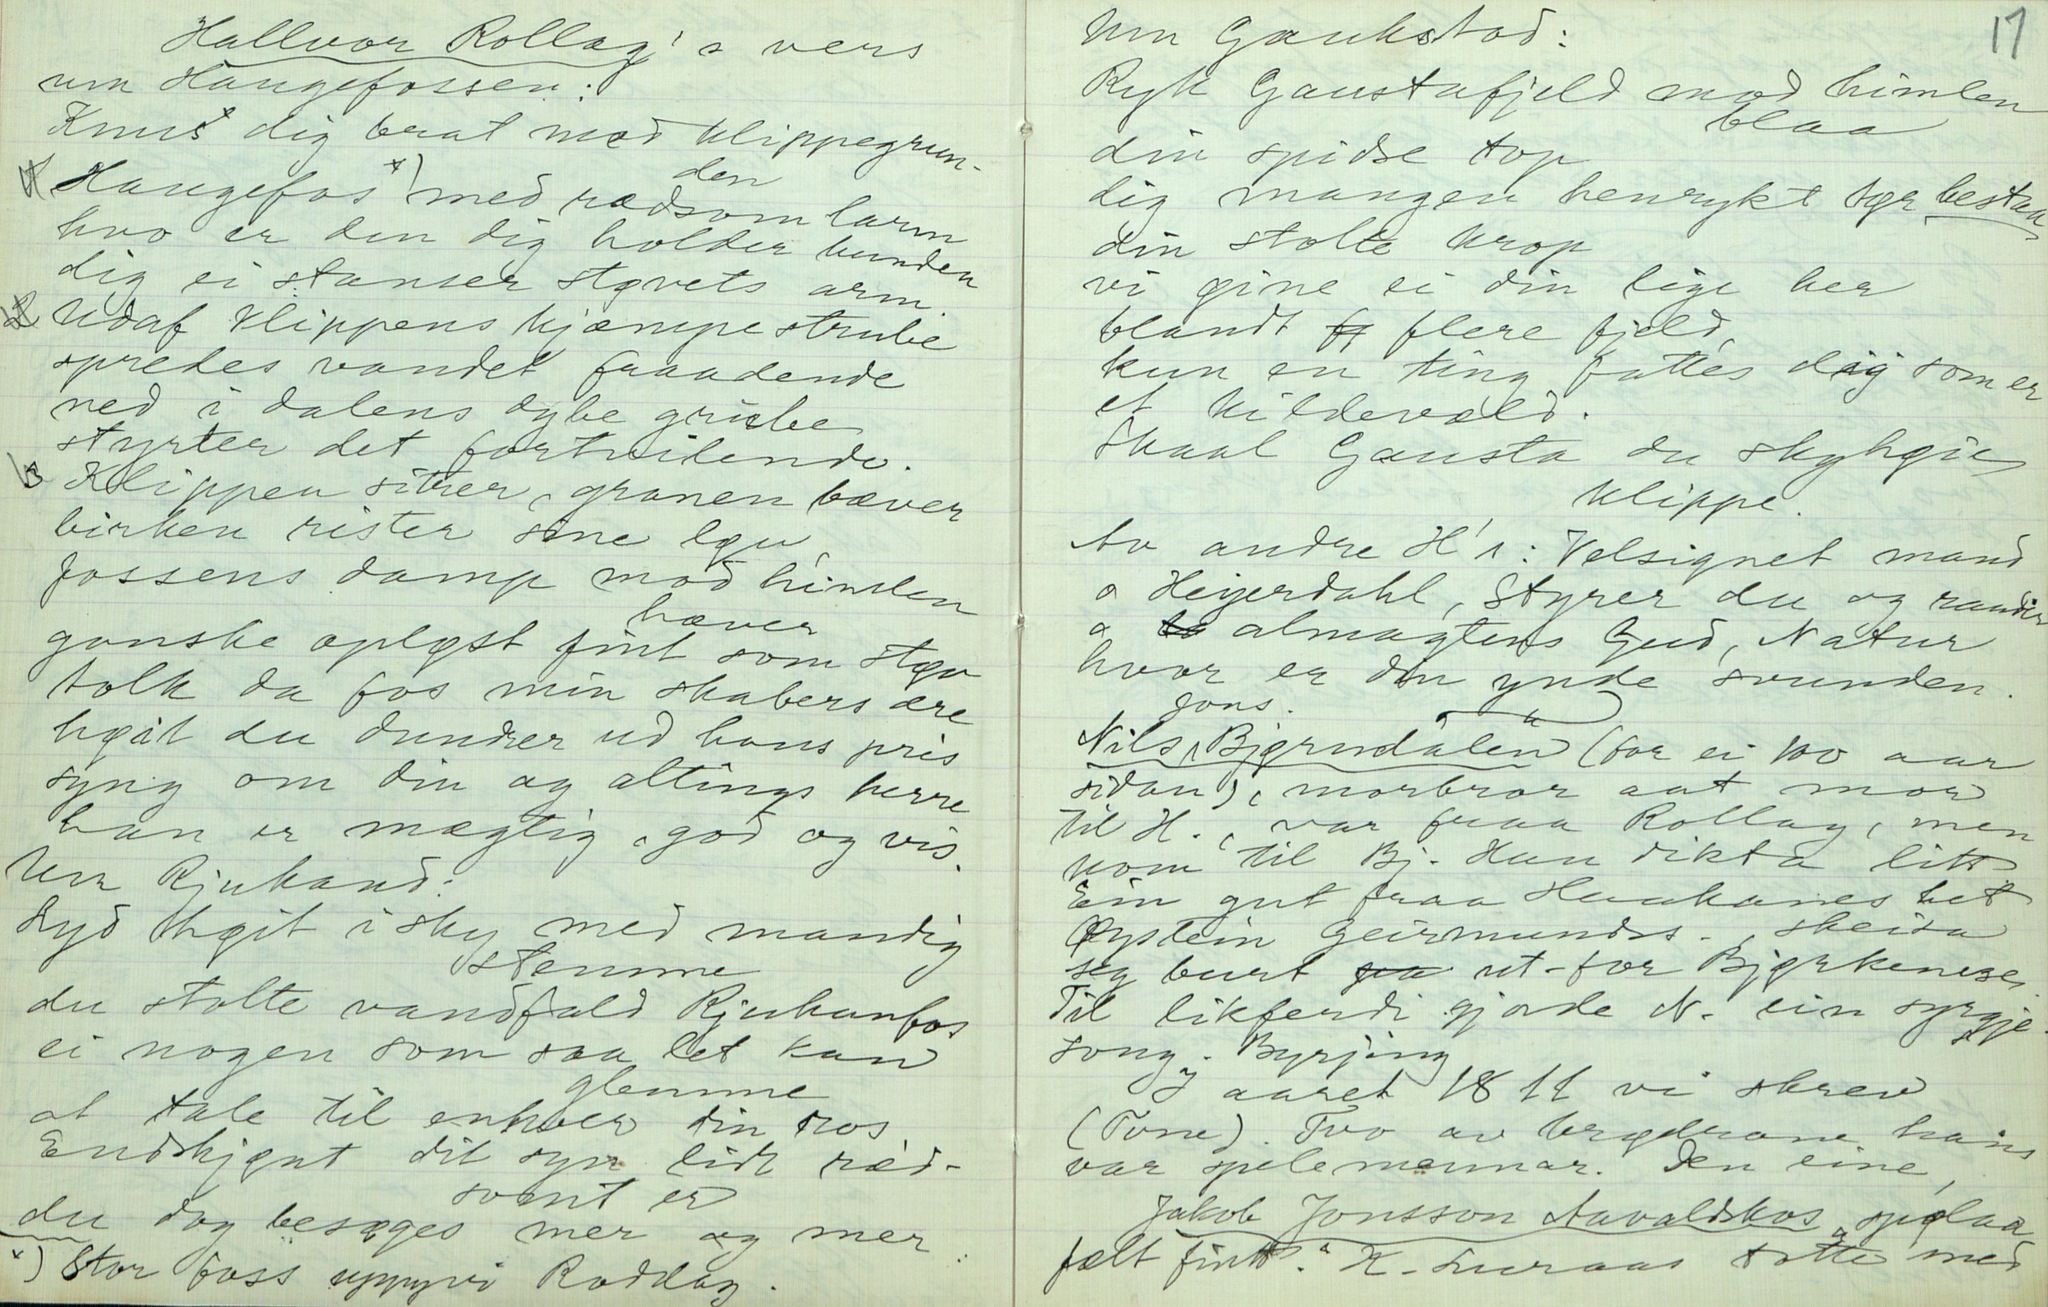 Hallvor Rollag's vers
um Haugefossen:
Knus dig brat mod klippegrun-
den
Haugefos *) med rædsom larm
hvo er den dig holder bunden
dig ei stanser støvets arm
2 Udaf klippens kjæmpe strube
spredes vandet fraadende
ned i dalens dybe grube
styrter det fortvilende.
3 Klippen sitrer, granen bæver
birken rister sine løv
fossens damp mod himlen
hæver
ganske opløst fint som støv
tolk da fos min skabers ære
høit du dundrer ud hans pris
syng om din og altings herre
han er mægtig, god og vis.
Um Rjukand:
Lyd høit i sky med mandig
stemme
du stolte vandfald Rjukanfos
ei nogen som saa let kan
glemme
at tale til enhver din ros
Endskjønt dit syn lidt ræd-
somt er
du dog besøges mer og mer
*) Stor foss uppyvi Roddag.
17
Um Gaukstad:
Ryk Gaustafjeld mod himlen
blaa
din spidse top
dig mangen henrykt tør bestaa
din stolte krop
vi gine ei din lige her
blandt flere fjeld,
kun en ting fattes dig som er
et kildevæld.
Skaal Gausta du skyhøie
klippe.
Av andre H's: Velsignet mand
o Heyerdahl, Styrer du og raader
o almagtens Gud, Natur
hvor er din ynde svunden.
Jons.
Nils Bjørndalen (for ei 100 aar
sidan), morbror aat mor
til H., var fraa Rollag, men
kom til Bj. Han dikta litt
Ein gut fraa Haukanes het
Øystein Geirmunds. skeisa
seg burt ut-for Bjørkenese.
Til likferdi gjorde N. ein syrgje-
song. Byrjing
I aaret 1811 vi skrev
(Tone). Tvo av brødrane hains
var spelemannar. Den eine,
Jakob Jonsson Aavaldskos "spelaa
fælt fint". K. Luraas totte med